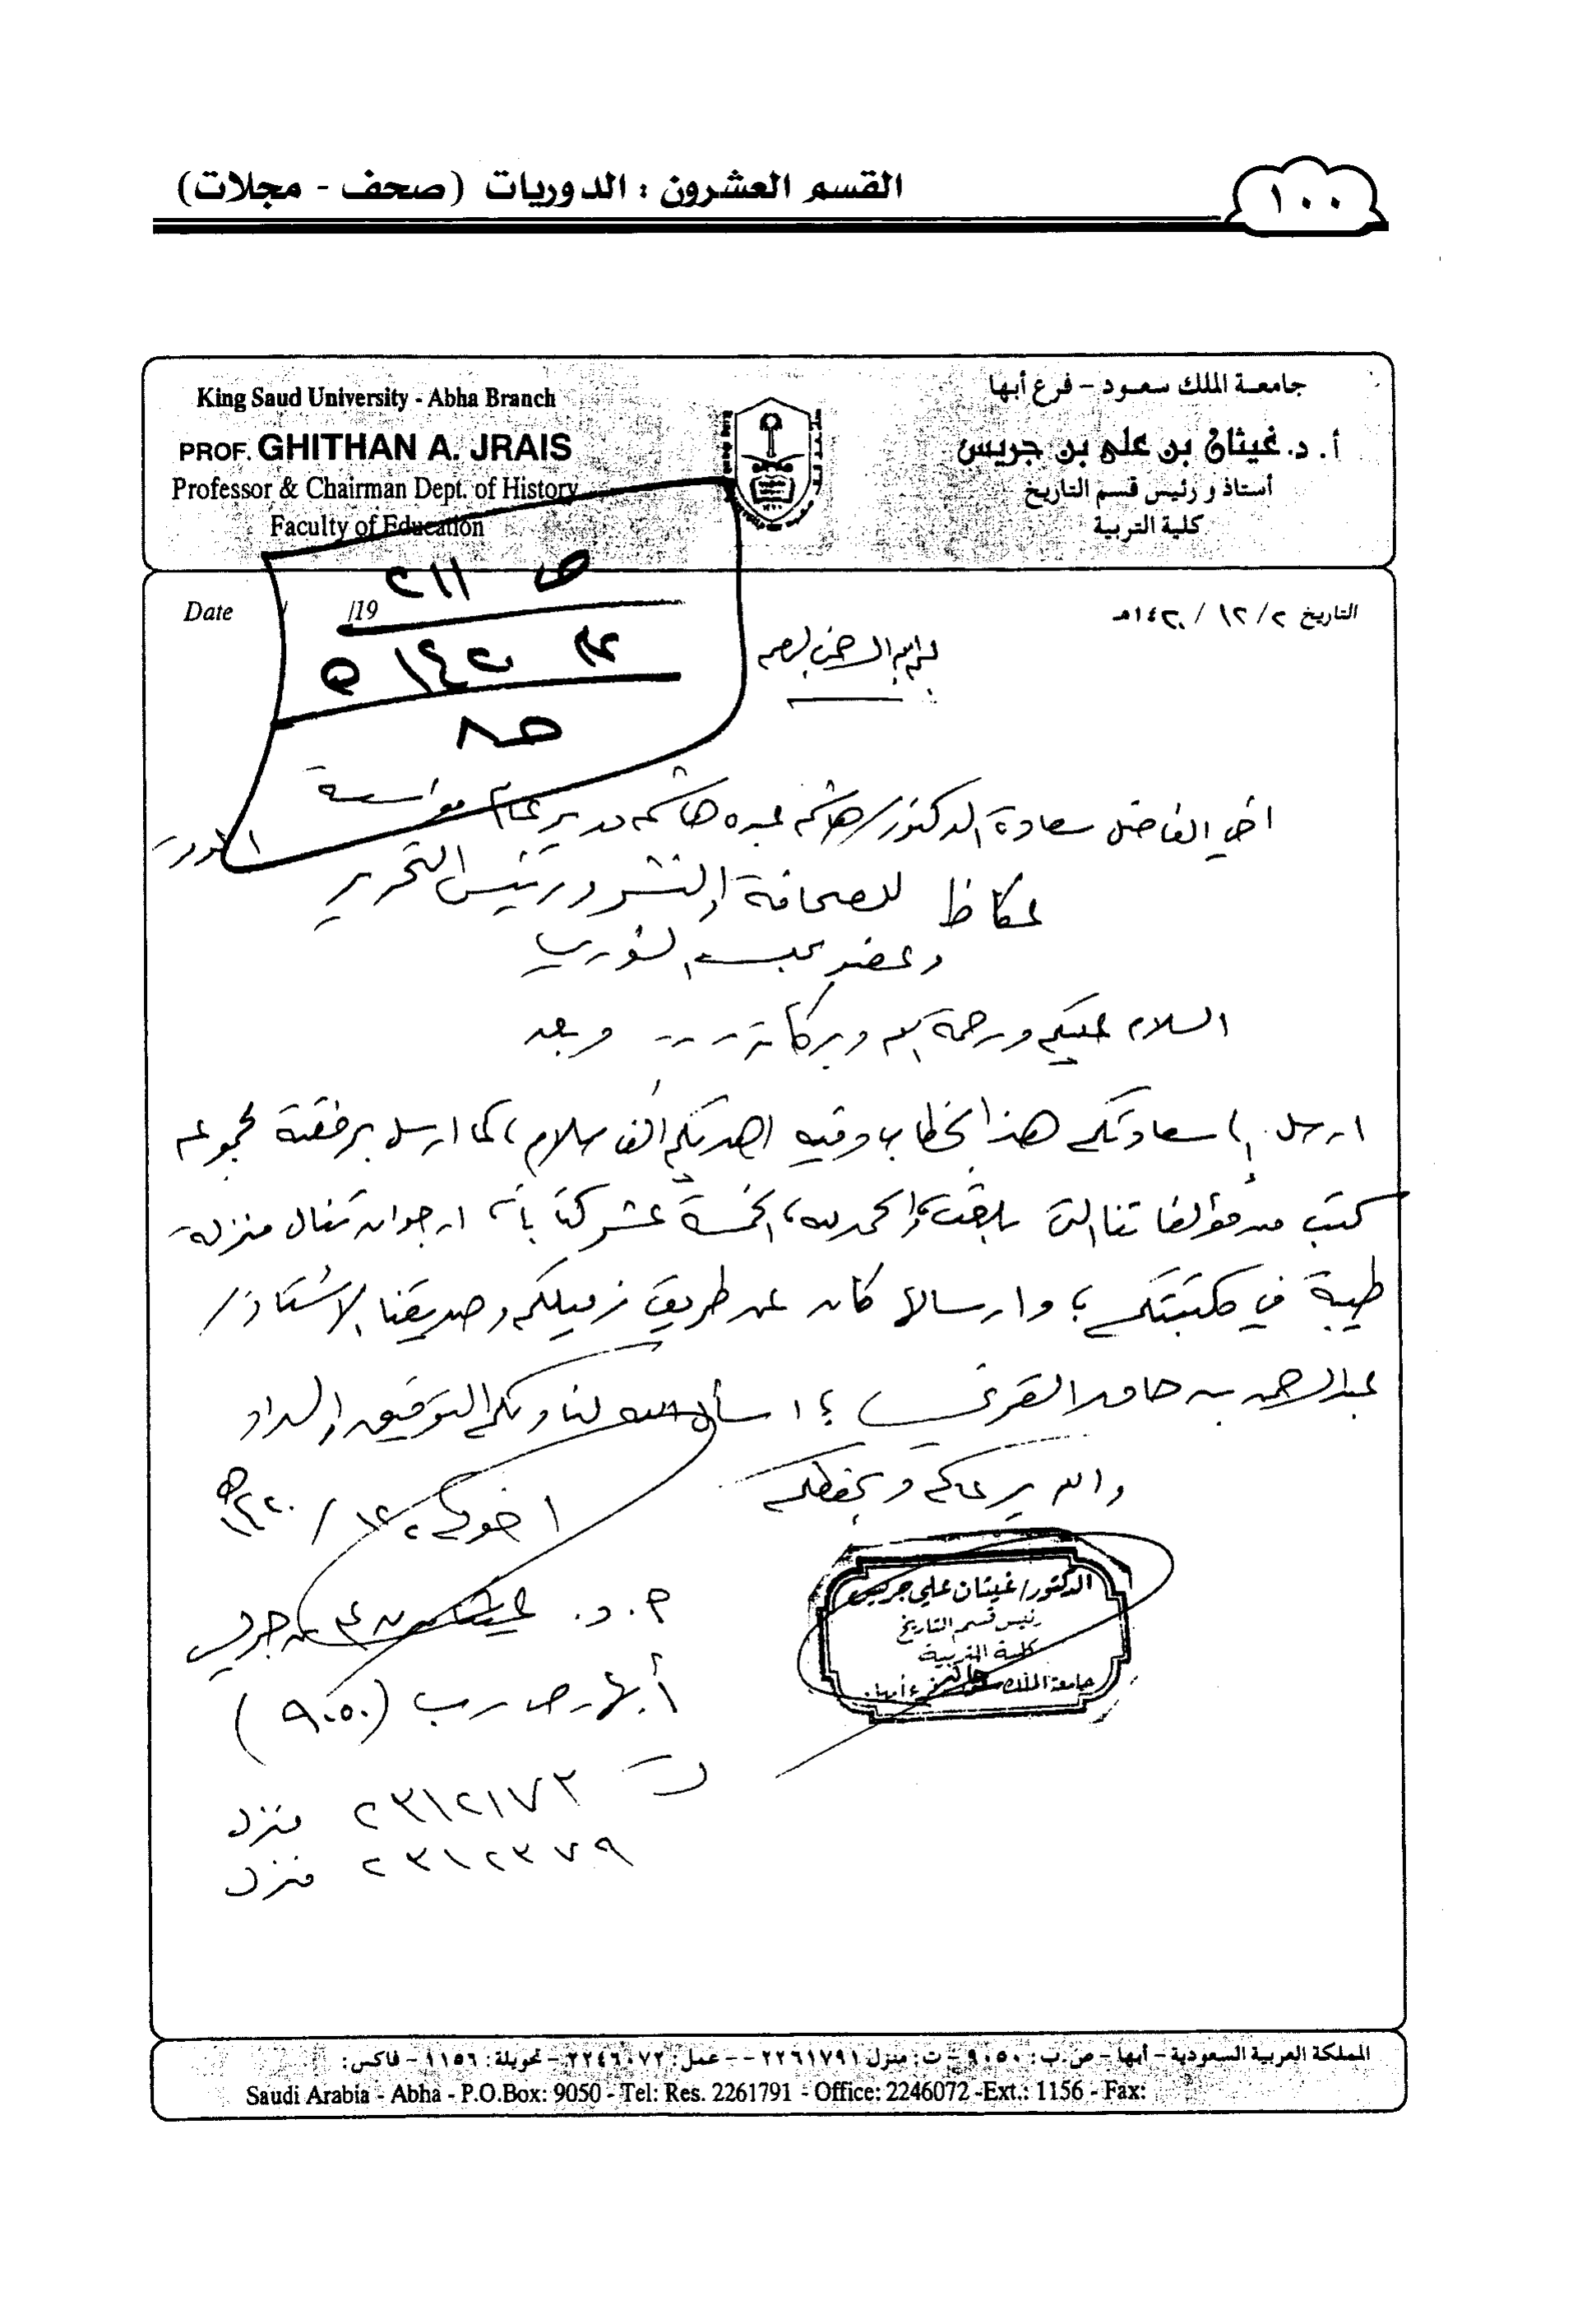 ١٠٠
القسم العشرون : الدوريات (صحف - مجلات)
King Saud University - Abha Branch
PROF. GHITHAN A. JRAIS
Professor & Chairman Dept. of History
Faculty of Education
جامعة الملك سعود - فرع أبها
أ. د. غيثان بن علي بن جريس
أستاذ و رئيس قسم التاريخ
كلية التربية
ص ٢١١
١٤٢٠ هـ
ص ٨
Date / /19
التاريخ ٢ / ١٢ / ١٤٢٠هـ
بسم الله الرحمن الرحيم
اخي الفاضل سعادة الدكتور/ هاشم عبده هاشم مدير عام مؤسسة
عكاظ للصحافة والنشر ورئيس التحرير
وعضو مجلس الشورى
الموقر
السلام عليكم ورحمة الله وبركاته ---- وبعد
ارسل إلى سعادتكم هذا الخطاب وفيه اهديكم الف سلام، كما ارسل برفقته مجموعة
كتب من مؤلفاتنا التي بلغت، والحمد لله، الخمسة عشر كتاباً، ارجو ان تنال منزلة
طيبة في مكتبتكم؛ وارسالها كان عن طريق زميلكم وصديقنا الاستاذ/
عبدالرحمن بن حامد القرني؛ اسأل الله لنا ولكم التوفيق والسداد
والله يرعاكم ويحفظكم
اخوكم ١٤٢٠/١٢/٢هـ
أ. د. غيثان بن علي بن جريس
أبها ص رب (٩٠٥٠)
ت ٢٣١٢١٧٣ منزل
٢٣١٢٣٧٩ منزل
الدكتور/ غيثان علي جريس
رئيس قسم التاريخ
كلية التربية
جامعة الملك سعود فرع أبها
المملكة العربية السعودية - أبها - ص.ب: ٩٠٥٠ - ت: منزل ٢٢٦١٧٩١ - - عمل: ٢٢٤٦٠٧٢ - تحويلة: ١١٥٦ - فاكس:
Saudi Arabia - Abha - P.O.Box: 9050 - Tel: Res. 2261791 - Office: 2246072 -Ext.: 1156 - Fax: